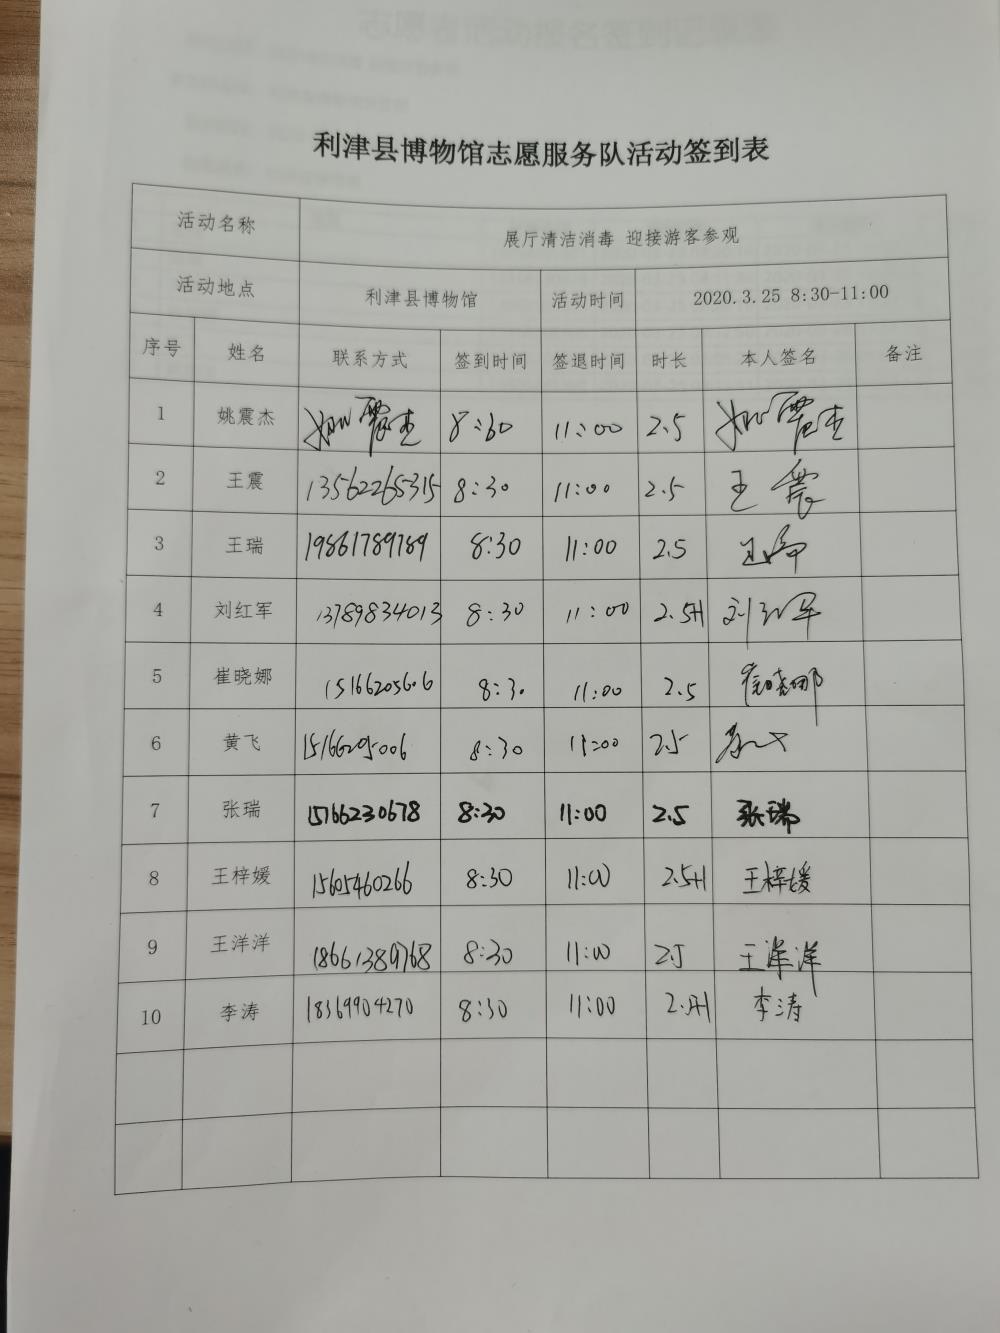 利津县博物馆志愿服务队活动签到表
活动名称 展厅清洁消毒 迎接游客参观
活动地点 利津县博物馆 活动时间 2020.3.25 8:30-11:00
序号 姓名 联系方式 签到时间 签退时间 时长 本人签名 备注
1 姚震杰 姚震杰 8:30 11:00 2.5 姚震杰
2 王震 13562265315 8:30 11:00 2.5 王震
3 王瑞 19861789789 8:30 11:00 2.5 王瑞
4 刘红军 13789834013 8:30 11:00 2.5H 刘红军
5 崔晓娜 8:30 11:00 2.5 崔晓娜
6 黄飞 8:30 11:00 2.5
7 张瑞 15166230678 8:30 11:00 2.5 张瑞
8 王梓媛 15605460266 8:30 11:00 2.5H 王梓媛
9 王洋洋 18661389768 8:30 11:00 2.5 王洋洋
10 李涛 18369904270 8:30 11:00 2.5H 李涛